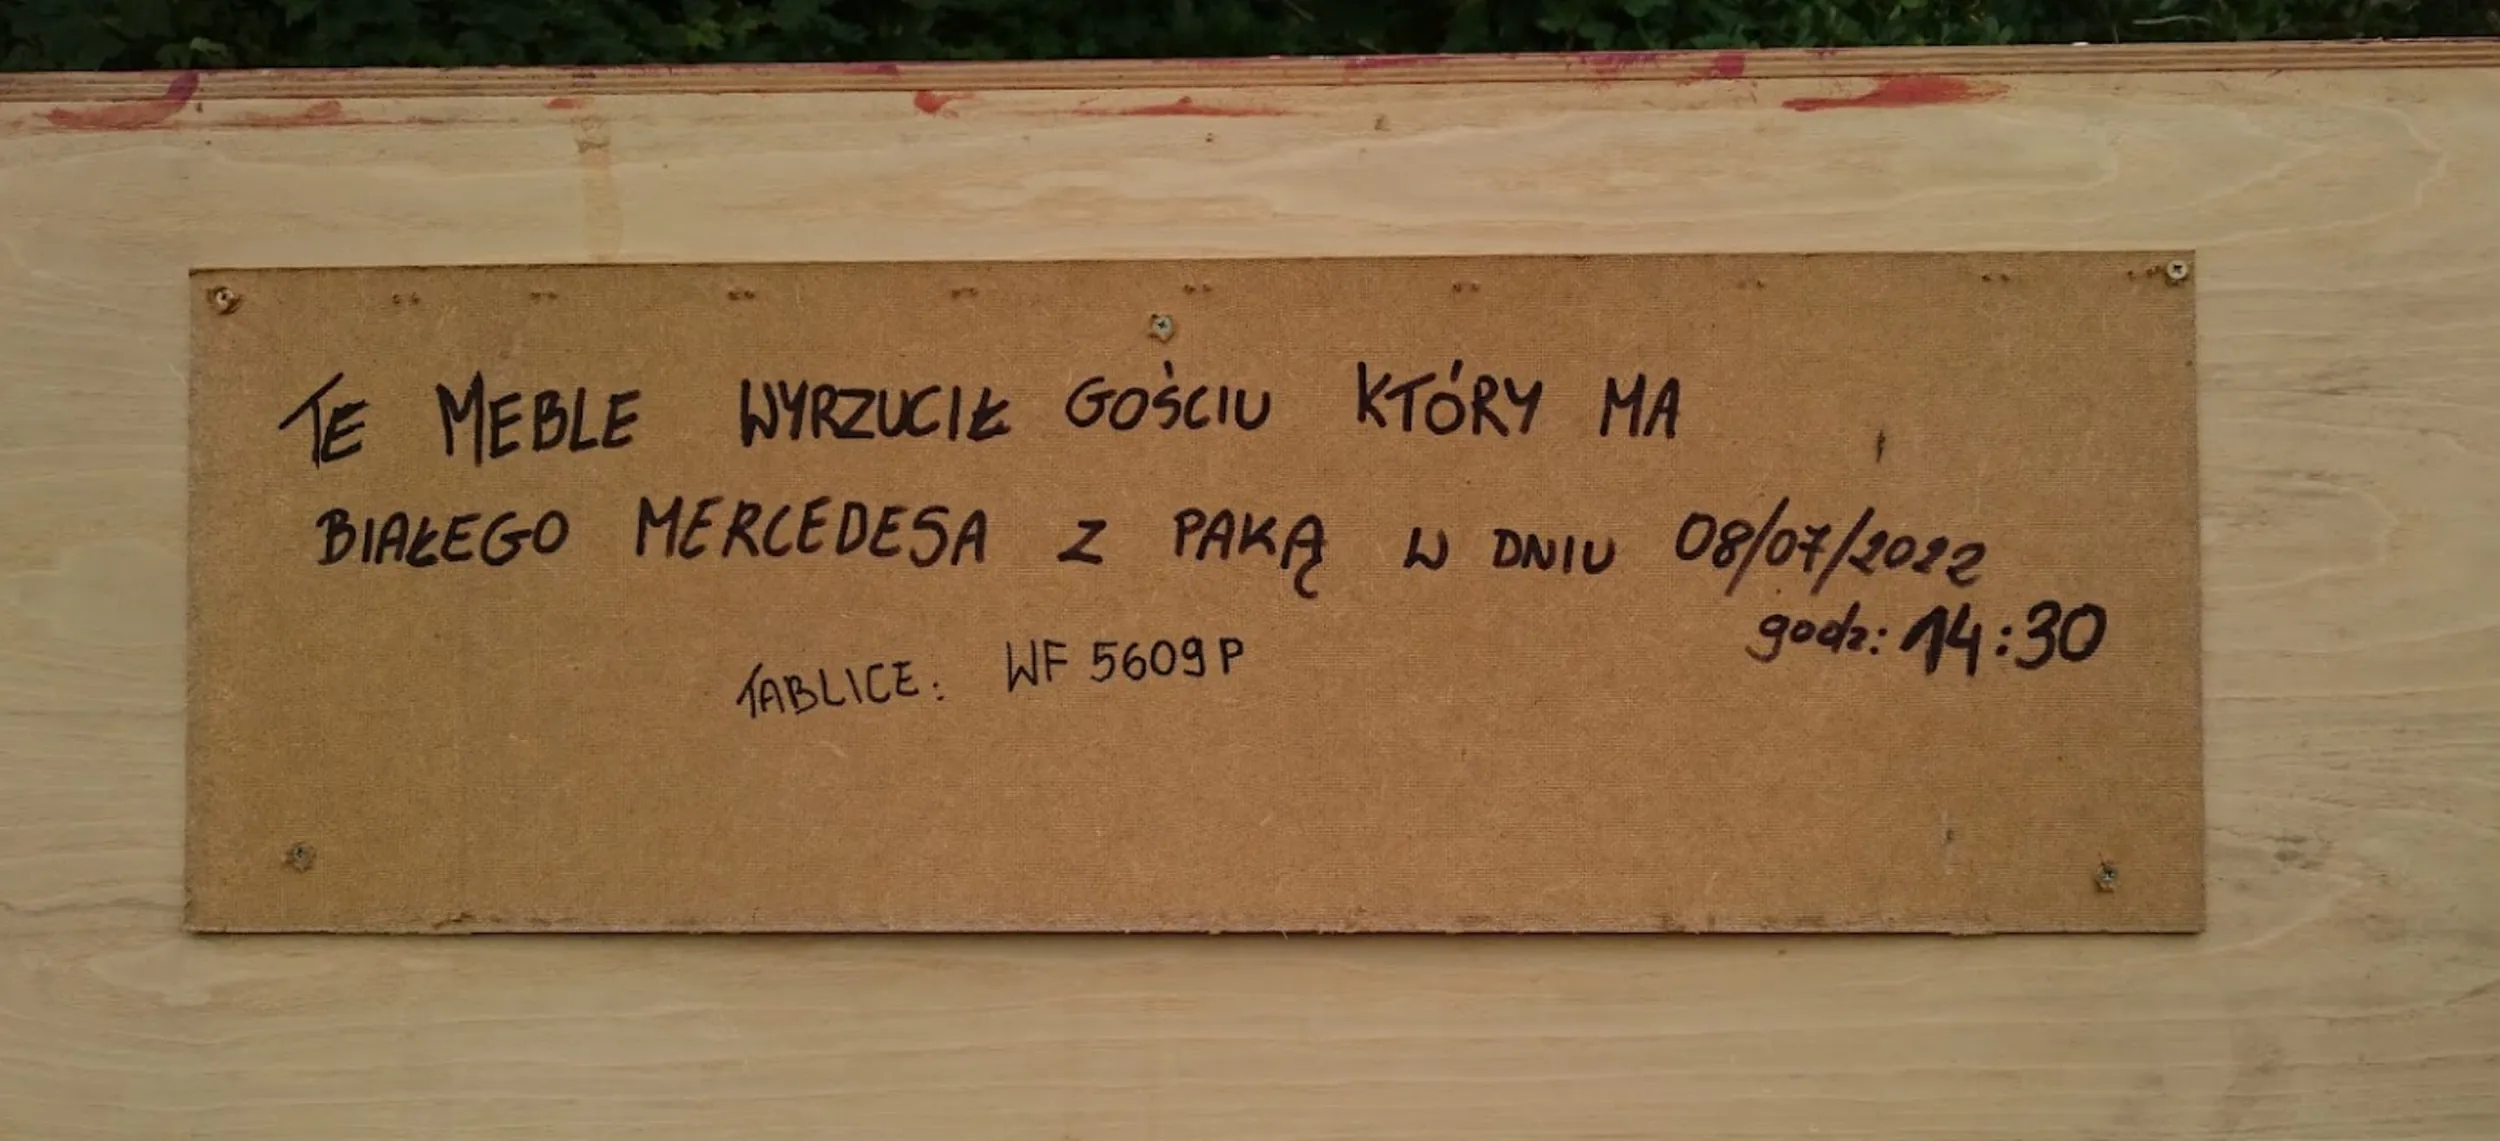 TE MEBLE WYRZUCIŁ GOŚCIU KTÓRY MA
BIAŁEGO MERCEDESA Z PAKĄ W DNIU 08/07/2022
godz: 14:30
TABLICE: WF 5609P